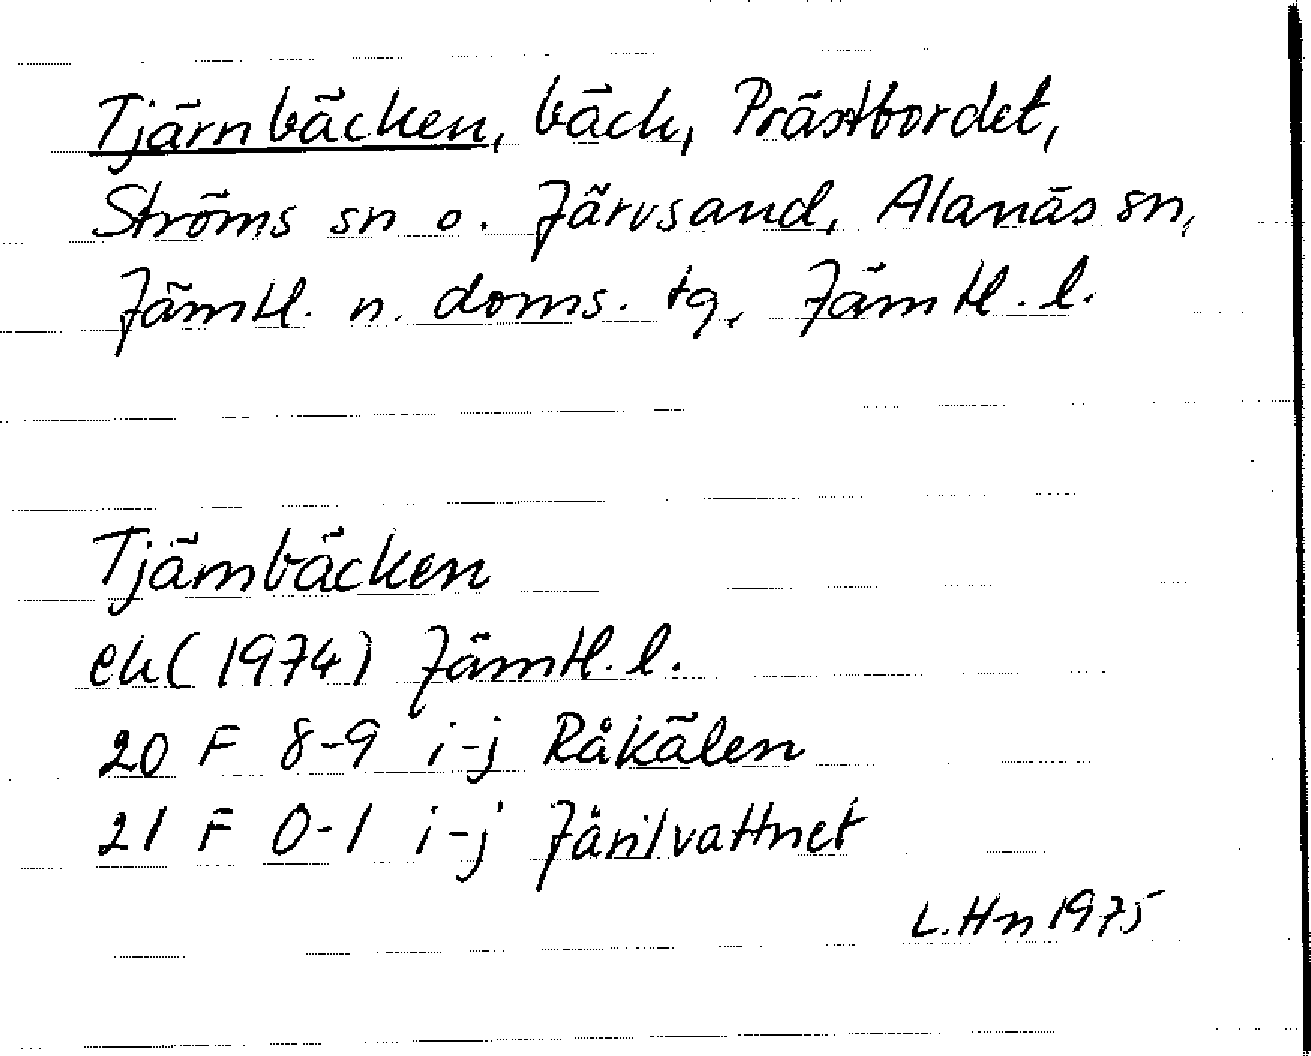 Tjärnbäcken, bäck, Prästbordet,
Ströms sn o. Järvsand, Alanäs sn,
Jämtl. n. doms. tg, Jämtl. l.
Tjärnbäcken
ek (1974) Jämtl. l.
20 F 8-9 i-j Råkälen
21 F 0-1 i-j
L. Hn 1975